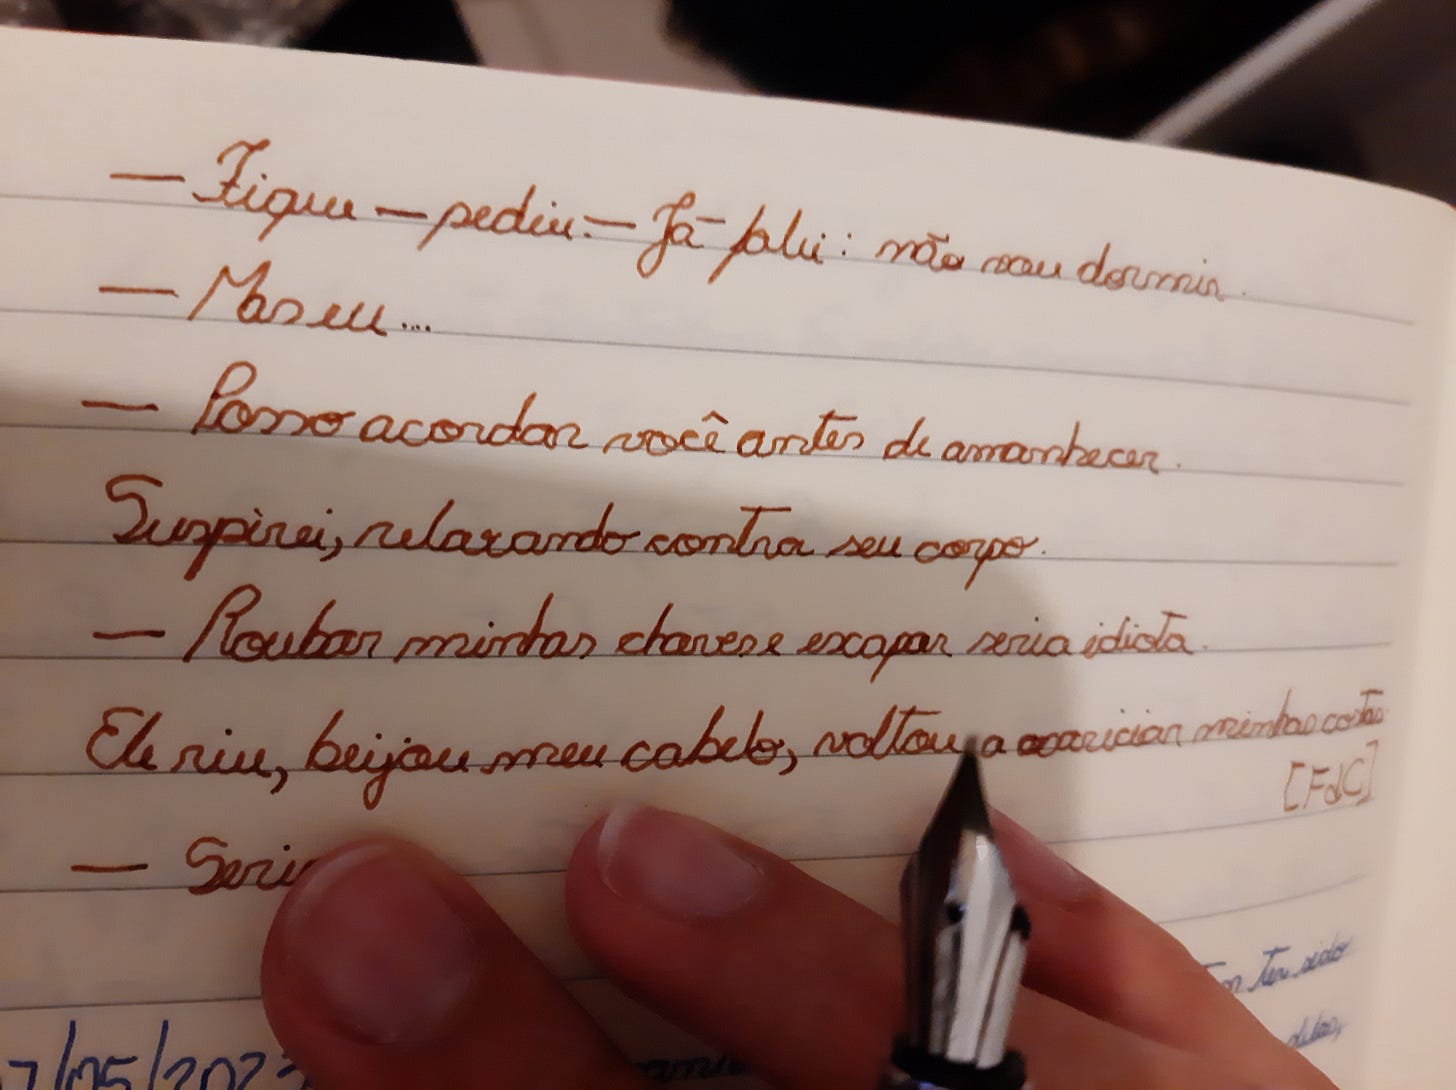 — Fique — pediu. — Já falei: não vou dormir.
— Mas eu...
— Posso acordar você antes de amanhecer.
Suspirei, relaxando contra seu corpo.
— Roubar minhas chaves e escapar seria idiota.
Ele riu, beijou meu cabelo, voltou a acariciar minhas costas
[FdC]
— Seri
ter sido
7/05/202